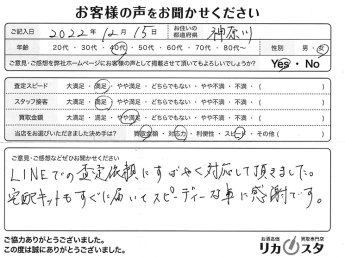 お客様の声をお聞かせください
ご記入日 2022年12月15日 お住いの都道府県 神奈川
年齢 20代・30代・40代・50代・60代・70代・80代〜 性別 男・女
ご意見・ご感想を弊社ホームページにお客様の声として掲載させて頂いてもよろしいでしょうか? Yes・No
査定スピード 大満足・満足・やや満足・どちらでもない・やや不満・不満・( )
スタッフ接客 大満足・満足・やや満足・どちらでもない・やや不満・不満・( )
買取金額 大満足・満足・やや満足・どちらでもない・やや不満・不満・( )
当店をお選びいただきました決め手は? 買取金額・対応力・利便性・スピード・その他( )
ご意見・ご感想などぜひお聞かせください
LINEでの査定依頼にすばやく対応して頂きました。
宅配キットもすぐに届いてスピーディーな事に感謝です。
ご協力ありがとうございました。
この度は誠にありがとうございました。
お酒名価 買取専門店
リカスタ